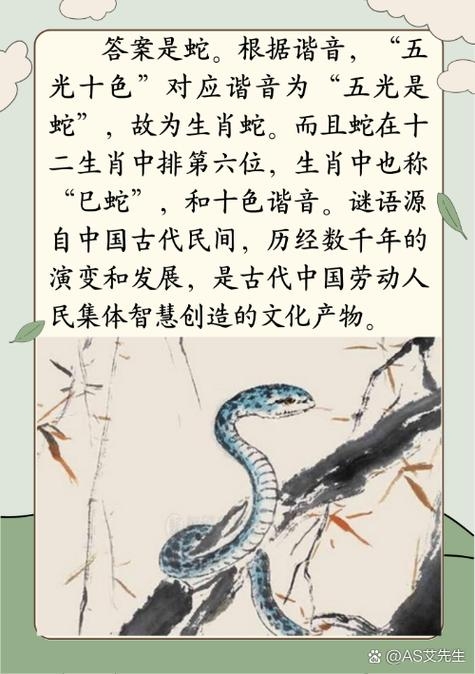 答案是蛇。根据谐音，“五
光十色”对应谐音为“五光是
蛇”，故为生肖蛇。而且蛇在十
二生肖中排第六位，生肖中也称
“巳蛇”，和十色谐音。谜语源
自中国古代民间，历经数千年的
演变和发展，是古代中国劳动人
民集体智慧创造的文化产物。
@AS艾先生